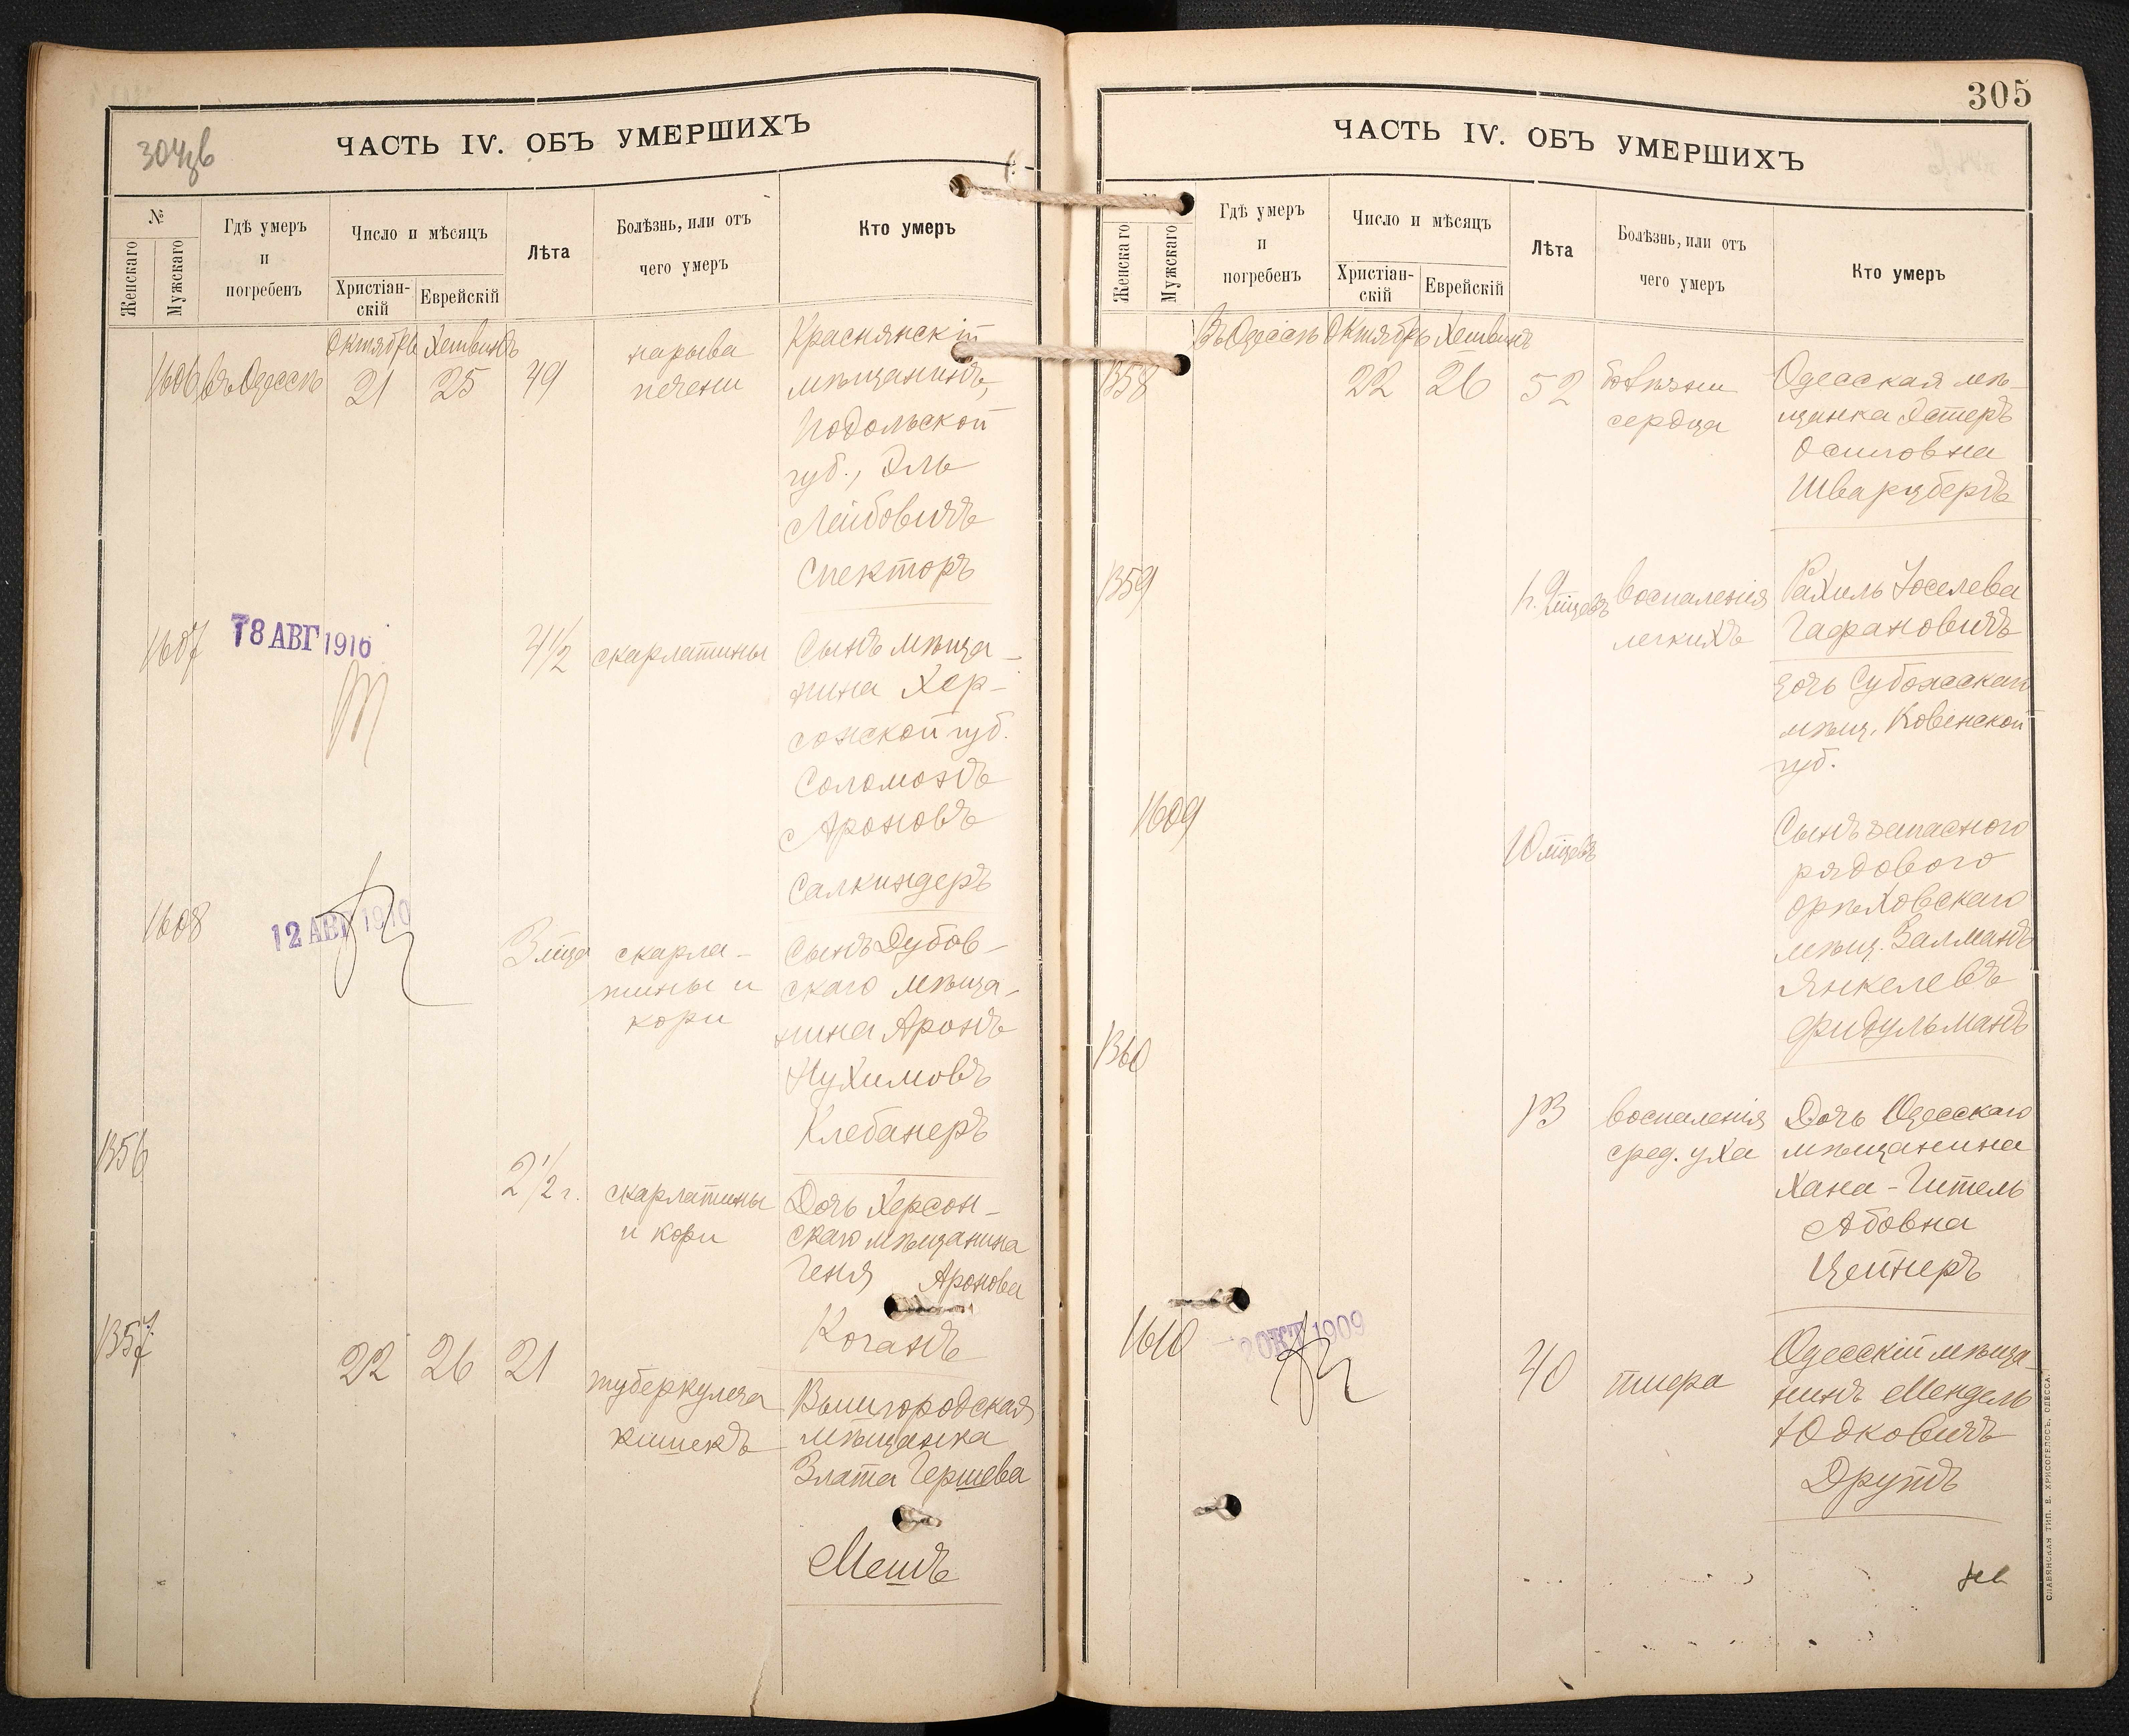 304об
ЧАСТЬ IV. ОБЪ УМЕРШИХЪ
№
Женскаго
Мужскаго
Гдѣ умеръ
и
погребенъ
Число и мѣсяцъ
Христіан-
скій
Еврейскій
Лѣта
Болѣзнь, или отъ
чего умеръ
Кто умеръ
Октябрь Хешвонъ
1606 въ Одессѣ 21 25 49 нарыва
печени
Краснянскій
мѣщанинъ,
Подольской
губ., Эль
Лейбовичъ
Спекторъ
1607 18 АВГ 1916 4½ скарлатины
Сынъ мѣща-
нина Хер-
сонской губ.
Соломонъ
Ароновъ
Салкиндеръ
1608 12 АВГ 1910 3 мѣца скарла-
тины и
кори
Сынъ Дубов-
скаго мѣща-
нина Аронъ
Нухимовъ
Клебанеръ
1356 2½ г. скарлатины
и кори
Дочь Херсон-
скаго мѣщанина
Геня Аронова
Коганъ
1357 22 26 21 туберкулеза
кишекъ
Вышгородская
мѣщанка
Злата Гершева
Мешъ
305
ЧАСТЬ IV. ОБЪ УМЕРШИХЪ
Женскаго
Мужскаго
Гдѣ умеръ
и
погребенъ
Число и мѣсяцъ
Христіан-
скій
Еврейскій
Лѣта
Болѣзнь, или отъ
чего умеръ
Кто умеръ
Въ Одессѣ Октябрь Хешвонъ
1358 22 26 52 болѣзни
сердца
Одесская мѣ-
щанка Эстеръ
Осиповна
Шварцбергъ
1359 воспаленія
легкихъ
Рахиль Іоселева
Гафановичъ
дочь Субочскаго
мѣщ. Ковенской
губ.
1609 10 мѣцевъ
Сынъ запасного
рядового
орѣховскаго
мѣщ. Залманъ
Янкелевъ
Фидульманъ
1360 13 воспаленія
сред. уха
Дочь Одесскаго
мѣщанина
Хана-Гитель
Абовна
Цейнеръ
1610 2 ОКТ 1909 40 тифа
Одесскій мѣща-
нинъ Мендель
Юдковичъ
Друтъ
СЛАВЯНСКАЯ ТИП. Е. ХРИСОГЕЛОСЪ, ОДЕССА.